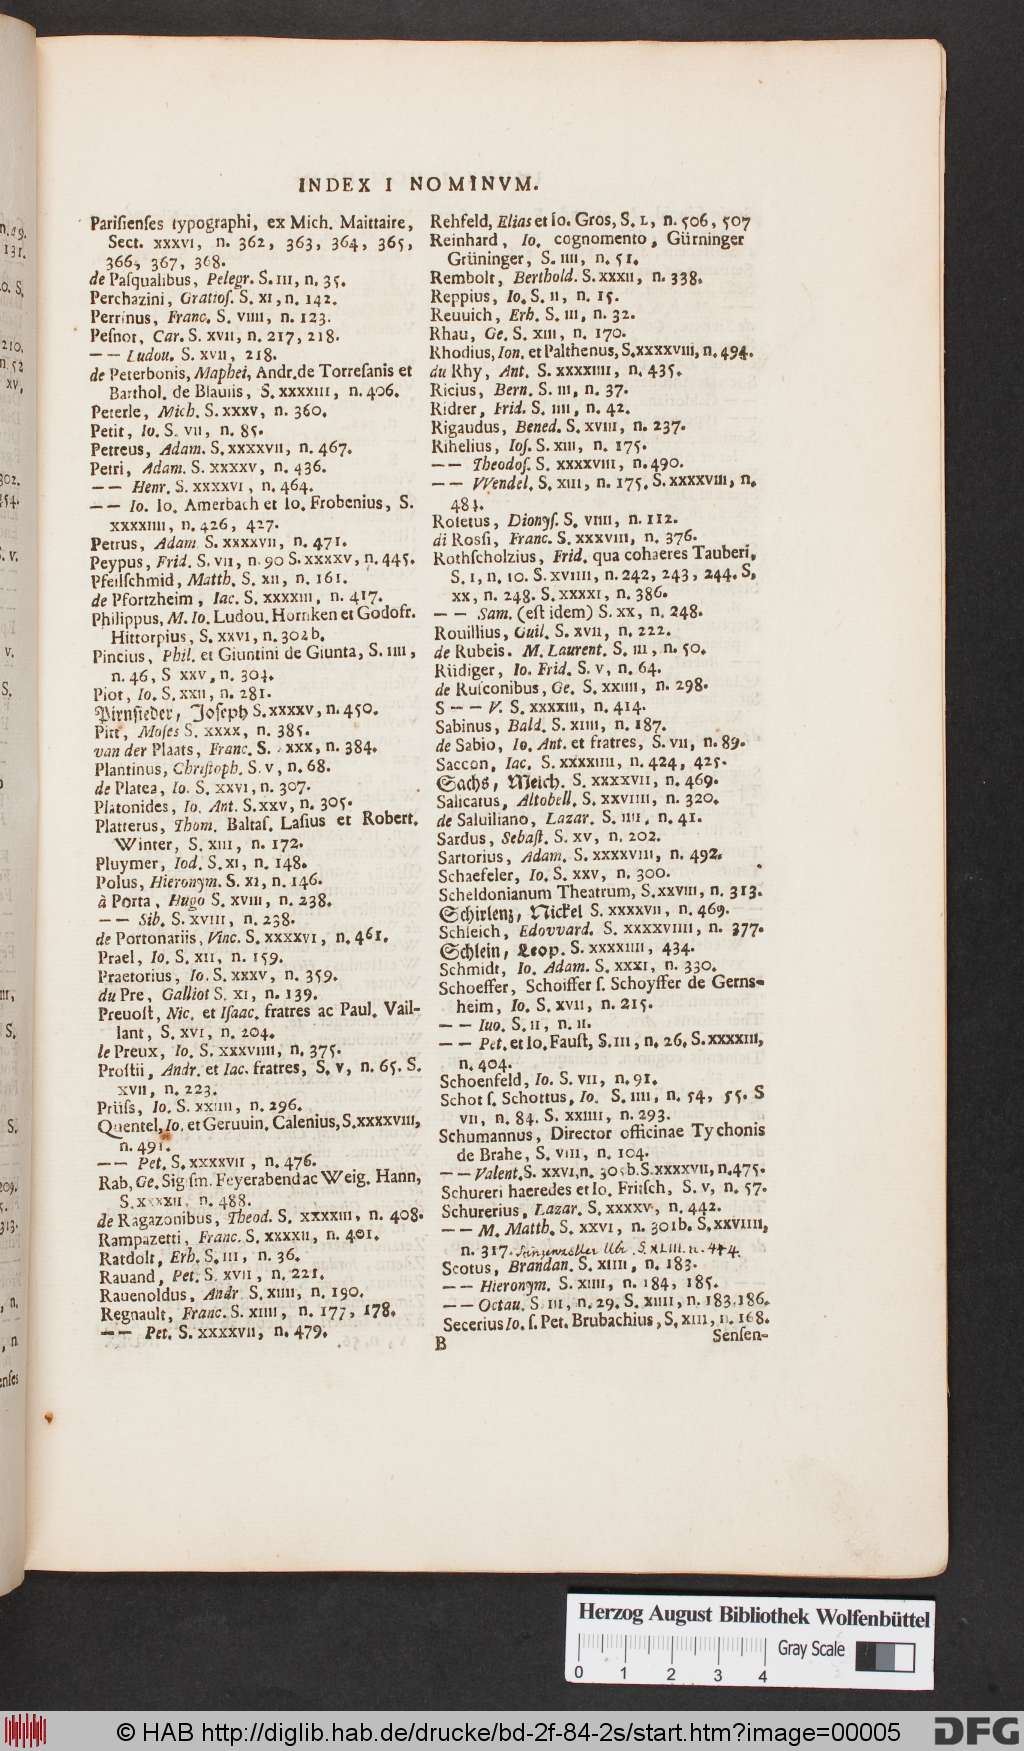 INDEX I NOMINVM.
Parisienses typographi, ex Mich. Maittaire,
Sect. xxxvi, n. 362, 363, 364, 365,
366, 367, 368.
de Pasqualibus, Pelegr. S. iii, n. 35.
Perchazini, Gratios. S. xi, n. 142.
Perrinus, Franc. S. viiii, n. 123.
Pesnot, Car. S. xvii, n. 217, 218.
— — Ludou. S. xvii, 218.
de Peterbonis, Maphei, Andr. de Torresanis et
Barthol. de Blauiis, S. xxxxiii, n. 406.
Peterle, Mich. S. xxxv, n. 360.
Petit, Io. S. vii, n. 85.
Petreus, Adam. S. xxxxvii, n. 467.
Petri, Adam. S. xxxxv, n. 436.
— — Henr. S. xxxxvi, n. 464.
— — Io. Io. Amerbach et Io. Frobenius, S.
xxxxiiii, n. 426, 427.
Petrus, Adam S. xxxxvii, n. 471.
Peypus, Frid. S. vii, n. 90 S. xxxxv, n. 445.
Pfeilschmid, Matth. S. xii, n. 161.
de Pfortzheim, Iac. S. xxxxiii, n. 417.
Philippus, M. Io. Ludou. Hornken et Godofr.
Hittorpius, S. xxvi, n. 302b.
Pincius, Phil. et Giuntini de Giunta, S. iiii,
n. 46, S xxv, n. 304.
Piot, Io. S. xxii, n. 281.
Pirnsieder, Joseph S. xxxxv, n. 450.
Pitt, Moses S. xxxx, n. 385.
van der Plaats, Franc. S. xxx, n. 384.
Plantinus, Christoph. S. v, n. 68.
de Platea, Io. S. xxvi, n. 307.
Platonides, Io. Ant. S. xxv, n. 305.
Platterus, Thom. Baltas. Lasius et Robert.
Winter, S. xiii, n. 172.
Pluymer, Iod. S. xi, n. 148.
Polus, Hieronym. S. xi, n. 146.
à Porta, Hugo S. xviii, n. 238.
— — Sib. S. xviii, n. 238.
de Portonariis, Vinc. S. xxxxvi, n. 461.
Prael, Io. S. xii, n. 159.
Praetorius, Io. S. xxxv, n. 359.
du Pre, Galliot S. xi, n. 139.
Preuost, Nic. et Isaac. fratres ac Paul. Vail-
lant, S. xvi, n. 204.
le Preux, Io. S. xxxviiii, n. 375.
Prostii, Andr. et Iac. fratres, S. v, n. 65. S.
xvii, n. 223.
Prüss, Io. S. xxiiii, n. 296.
Quentel, Io. et Geruuin. Calenius, S. xxxxviii,
n. 491.
— — Pet. S. xxxxvii, n. 476.
Rab, Ge. Sigism. Feyerabend ac Weig. Hann,
n. 488.
de Ragazonibus, Theod. S. xxxxiii, n. 408.
Rampazetti, Franc. S. xxxxii, n. 401.
Ratdolt, Erh. S. iii, n. 36.
Rauand, Pet. S. xvii, n. 221.
Rauenoldus, Andr S. xiiii, n. 190.
Regnault, Franc. S. xiiii, n. 177, 178.
— — Pet. S. xxxxvii, n. 479.
Rehfeld, Elias et Io. Gros, S. l, n. 506, 507
Reinhard, Io. cognomento, Gürninger
Grüninger, S. iiii, n. 51.
Rembolt, Berthold. S. xxxii, n. 338.
Reppius, Io. S. ii, n. 15.
Reuuich, Erh. S. iii, n. 32.
Rhau, Ge. S. xiii, n. 170.
Rhodius, Ion. et Palthenus, S. xxxxviii, n. 494.
du Rhy, Ant. S. xxxxiiii, n. 435.
Ricius, Bern. S. iii, n. 37.
Ridrer, Frid. S. iiii, n. 42.
Rigaudus, Bened. S. xviii, n. 237.
Rihelius, Ios. S. xiii, n. 175.
— — Theodos. S. xxxxviii, n. 490.
— — VVendel. S. xiii, n. 175. S. xxxxviii, n.
484.
Rosetus, Dionys. S. viiii, n. 112.
di Rossi, Franc. S. xxxviii, n. 376.
Rothscholzius, Frid. qua cohaeres Tauberi,
S. i, n. 10. S. xviiii, n. 242, 243, 244. S.
xx, n. 248. S. xxxxi, n. 386.
— — Sam. (est idem) S. xx, n. 248.
Rouillius, Guil. S. xvii, n. 222.
de Rubeis. M. Laurent. S. iii, n. 50.
Rüdiger, Io. Frid. S. v, n. 64.
de Rusconibus, Ge. S. xxiiii, n. 298.
S — — V. S. xxxxiii, n. 414.
Sabinus, Bald. S. xiiii, n. 187.
de Sabio, Io. Ant. et fratres, S. vii, n. 89.
Saccon, Iac. S. xxxxiiii, n. 424, 425.
Sachs, Melch. S. xxxxvii, n. 469.
Salicatus, Altobell. S. xxviiii, n. 320.
de Saluiliano, Lazar. S. iiii, n. 41.
Sardus, Sebast. S. xv, n. 202.
Sartorius, Adam. S. xxxxviii, n. 492.
Schaefeler, Io. S. xxv, n. 300.
Scheldonianum Theatrum, S. xxviii, n. 313.
Schirlenz, Nickel S. xxxxvii, n. 469.
Schleich, Edovvard. S. xxxxviiii, n. 377.
Schlein, Leop. S. xxxxiiii, 434.
Schmidt, Io. Adam. S. xxxi, n. 330.
Schoeffer, Schoiffer s. Schoyffer de Gerns-
heim, Io. S. xvii, n. 215.
— — Iuo. S. ii, n. 11.
— — Pet. et Io. Faust, S. iii, n. 26, S. xxxxiii,
n. 404.
Schoenfeld, Io. S. vii, n. 91.
Schot s. Schottus, Io. S. iiii, n. 54, 55. S
vii, n. 84. S. xxiiii, n. 293.
Schumannus, Director officinae Tychonis
de Brahe, S. viii, n. 104.
— — Valent. S. xxvi, n. 305b. S. xxxxvii, n. 475.
Schureri haeredes et Io. Fritsch, S. v, n. 57.
Schurerius, Lazar. S. xxxxv, n. 442.
— — M. Matth. S. xxvi, n. 301b. S. xxviiii,
n. 317. S. XLIII. n. 414.
Scotus, Brandan. S. xiiii, n. 183.
— — Hieronym. S. xiiii, n. 184, 185.
— — Octau. S. iii, n. 29. S. xiiii, n. 183, 186.
Secerius Io. s. Pet. Brubachius, S. xiii, n. 168.
B Sensen-
Herzog August Bibliothek Wolfenbüttel
0 1 2 3 4 Gray Scale
© HAB http://diglib.hab.de/drucke/bd-2f-84-2s/start.htm?image=00005 DFG